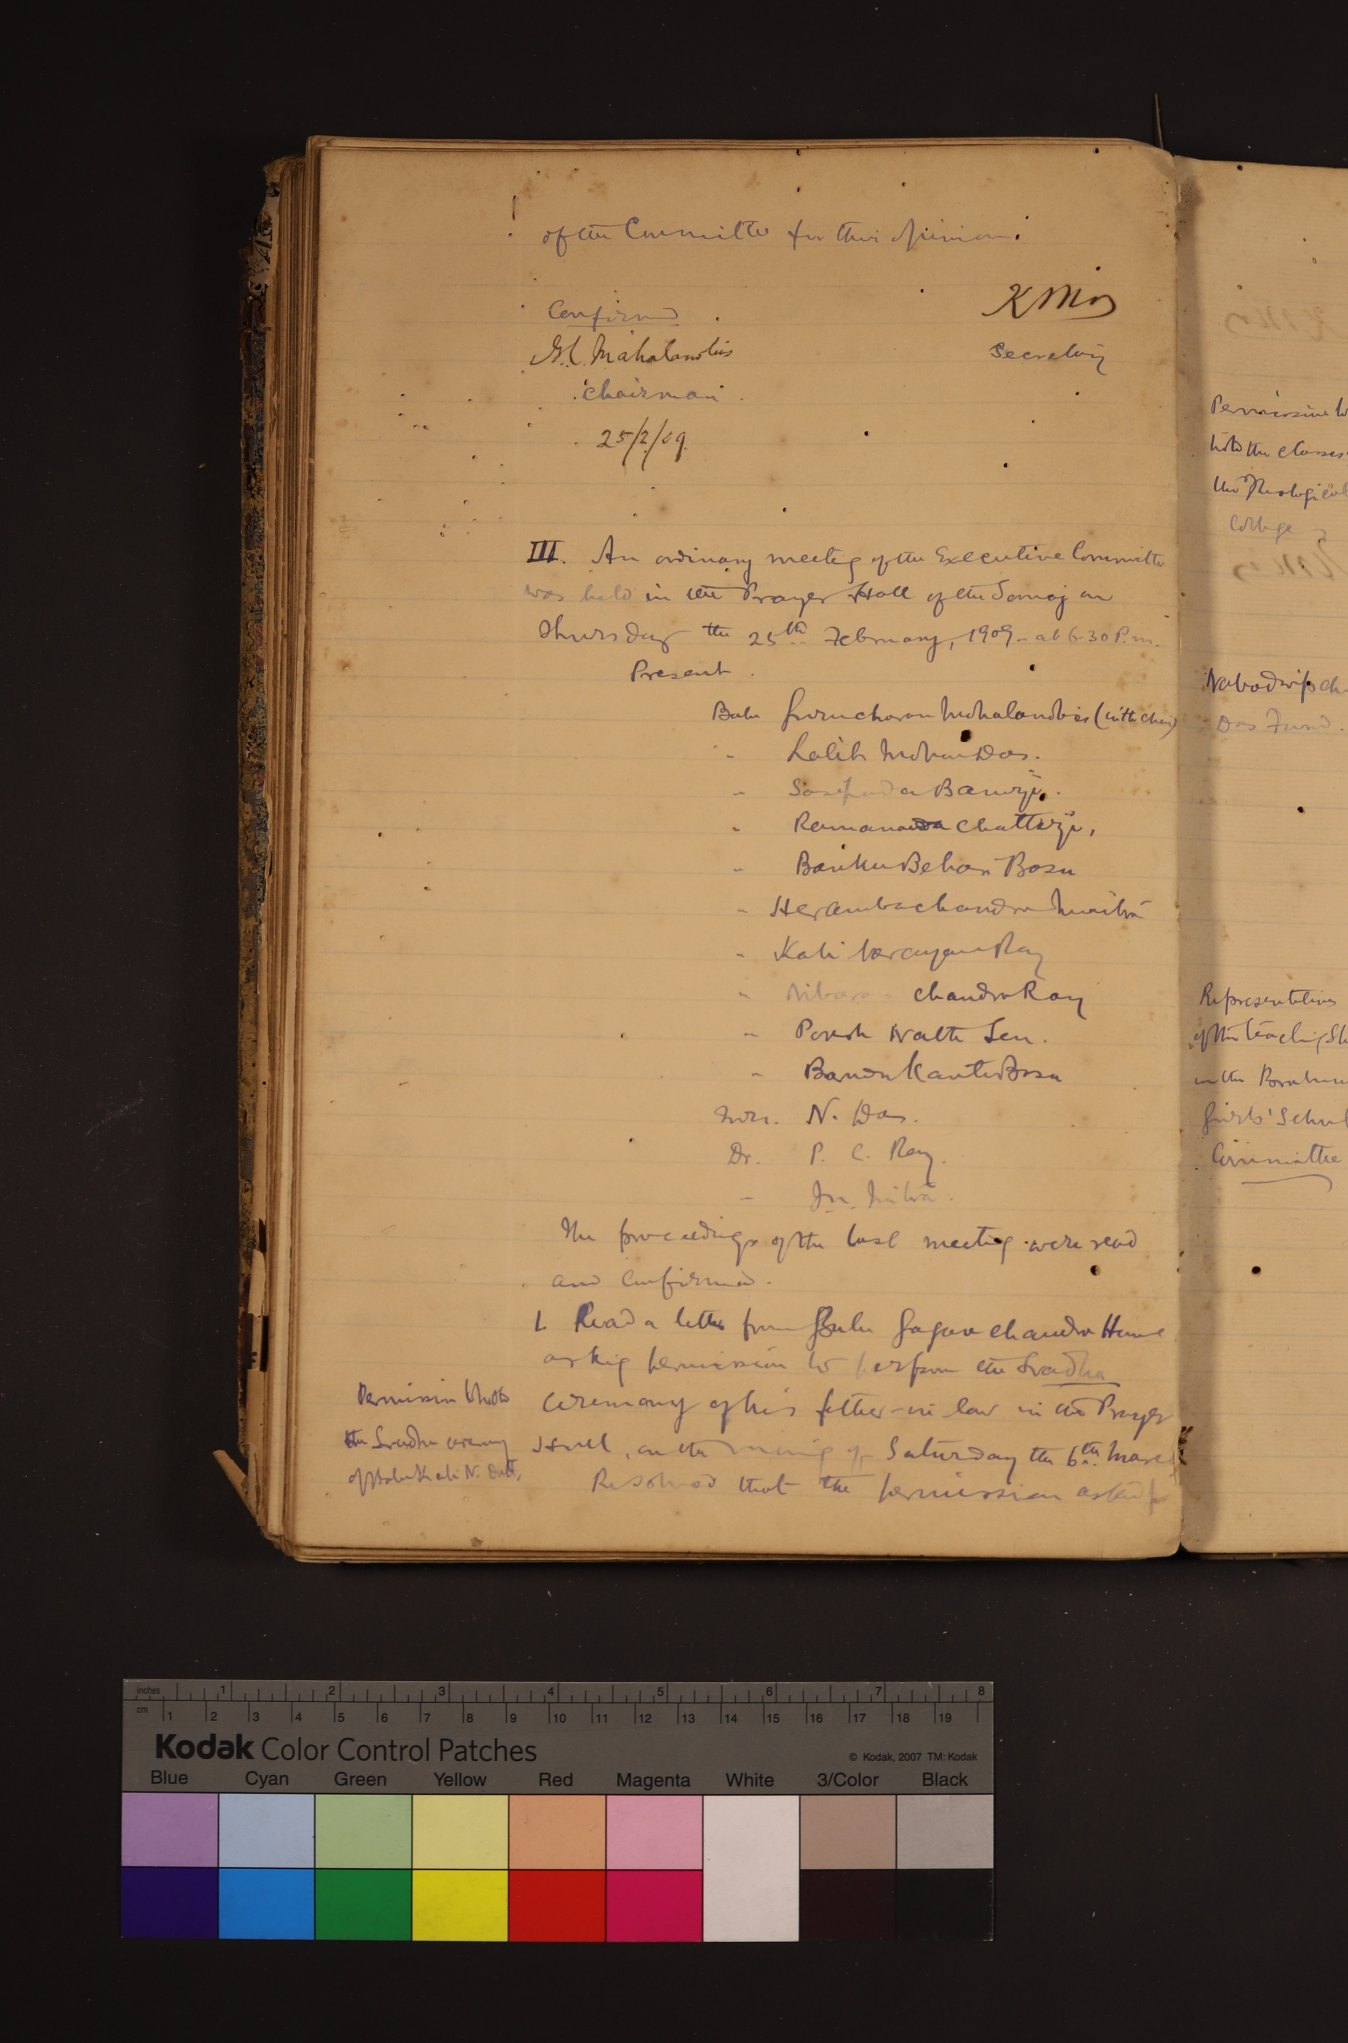 of the Committee for their opinion.
Confirmed
Chairman
25/2/09
Secretary
III. An ordinary meeting of the Executive Committee
was held in the Prayer Hall of the Samaj on
Thursday the 25th February, 1909 at 6-30 P.m.
Present
Babu Gurucharan Mahalanobis (in the chair)
" Lalit Mohan Das.
" Sasipada Banerji.
" Ramananda Chatterji,
" Banku Behari Basu
" Herambachandra Maitra
" Kali Narayan Ray
" Nibaran Chandra Ray
" Paresh Nath Sen.
" Barada Kanta Basu
Mr. N. Das.
Dr. P. C. Ray.
The proceedings of the last meeting were read
and confirmed.
1. Read a letter from Babu Gagan Chandra Home
asking permission to perform the Sradha
ceremony of his father-in-law in the Prayer
Hall, on the morning of Saturday the 6th March
Resolved that the permission asked for
Permission to hold
the Sradha ceremony
of Babu Kali N. Datt.
Permission to
hold the classes
the Theological
College
Nabadwip ch
Das Fund.
Representatives
of the teaching St
in the Brahmo
Girls' School
Committee
inches 1 2 3 4 5 6 7 8
cm 1 2 3 4 5 6 7 8 9 10 11 12 13 14 15 16 17 18 19
Kodak Color Control Patches
© Kodak, 2007 TM: Kodak
Blue Cyan Green Yellow Red Magenta White 3/Color Black